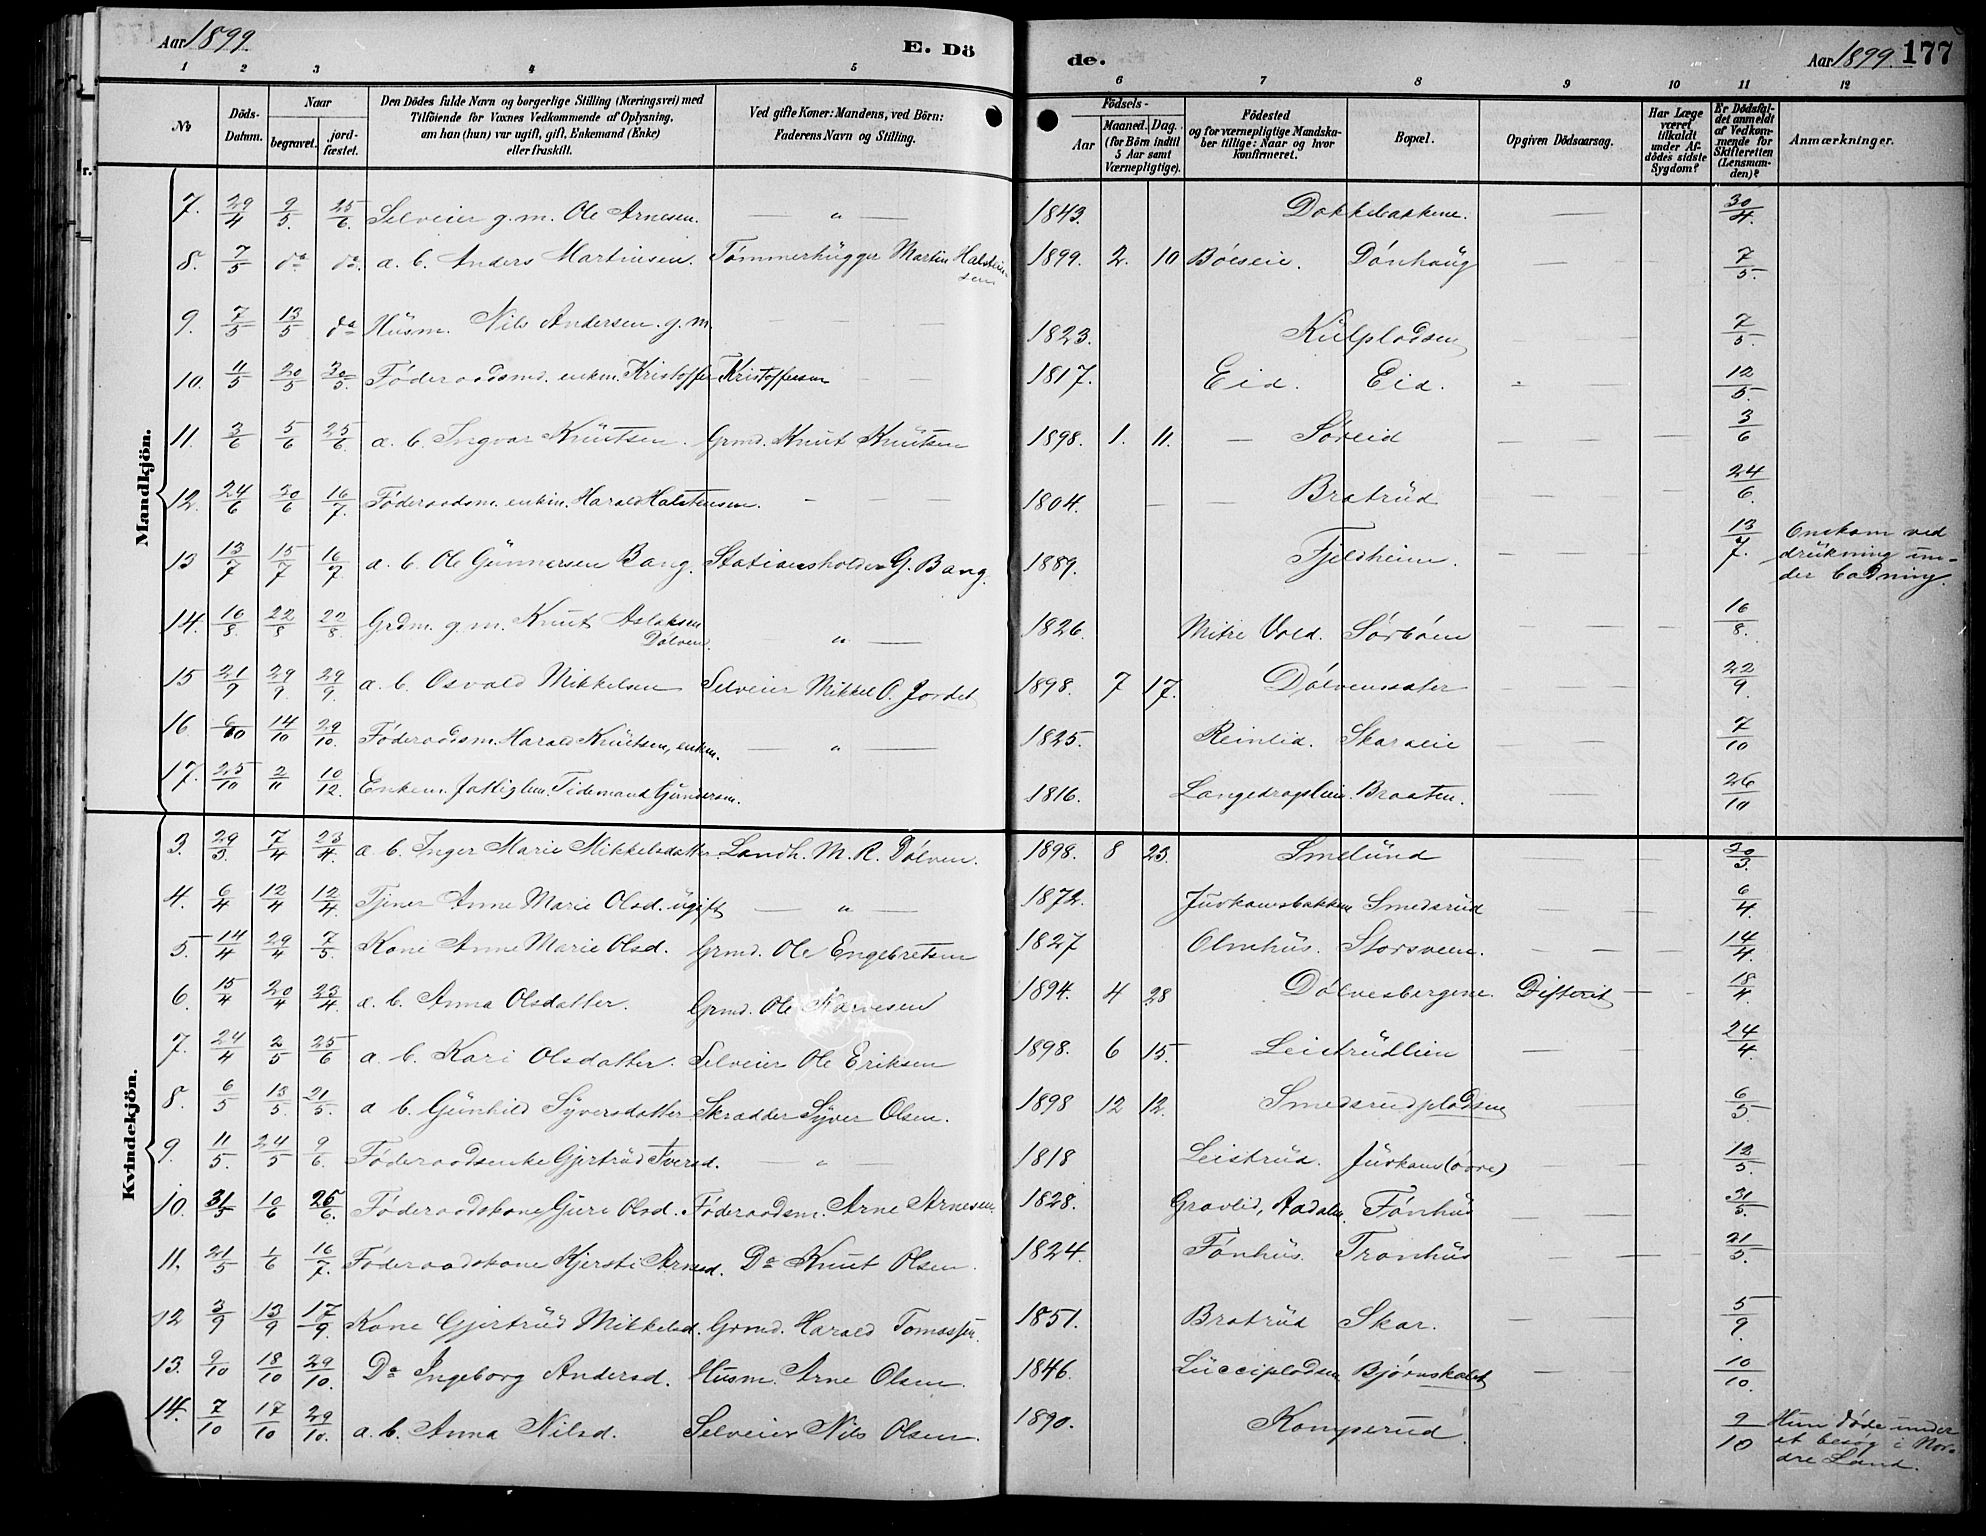 Aar 1899.
E. Dö
de.
Aar 1899. 177
1 2 3 4 5 6 7 8 9 10 11 12
No
Döds-Datum.
Naar
begravet.
jord-fæstet.
Den Dödes fulde Navn og borgerlige Stilling (Næringsvei) med
Tilföiende for Voxnes Vedkommende af Oplysning,
om han (hun) var ugift, gift, Enkemand (Enke)
eller fraskilt.
Ved gifte Koner: Mandens, ved Börn:
Faderens Navn og Stilling.
Födsels-
Aar
Maaned. Dag.
(for Börn indtil
5 Aar samt
Værnepligtige).
Födested
og for værnepligtige Mandska-
ber tillige: Naar og hvor
konfirmeret.
Bopæl.
Opgiven Dödsaarsag.
Har Læge
været
tilkaldt
under Af-
dödes sidste
Sygdom?
Er Dödsfal-
det anmeldt
af Vedkom-
mende for
Skifteretten
(Lensman-
den)?
Anmærkninger.
Mandkjön.
7. 29/4 2/5. 25/6. Selveier g.m. Ole Arnesen. — " — 1843. Dokkebakkene. — 30/4.
8. 7/5 do do. a. b. Anders Martinsen. Tømmerhugger Martin Halstein-
sen 1899. 2. 10 Böeseie. Dönhaug — 7/5.
9. 7/5 13/5 do Husm. Nils Andersen. g. m. — — — 1823. Kulpladsen — 7/5.
10. 11/5 20/5 30/5. Föderaadsmd. enkm. Kristoffer Kristoffersen — — 1817. Eid. Eid. 12/5.
11. 3/6 5/6 25/6. a. b. Ingvar Knutsen. Grmd. Knut Knutsen 1898. 1. 11. — Søreid — — 3/6
12. 24/6 30/6 16/7. Föderaadsm. enkm. Harald Halstensen. — — — 1804. — — Bratrud — — 24/6.
13 13/7 15/7 16/7 a. b. Ole Gunnarsen Bang. Stationsholder G. Bang. 1889. Fjeldheim. — — — 13/7. Omkom ved
drukning un-
der badning.
14. 16/8. 22/8 22/8. Grdm. g. m. Knut Aslaksen
Dölven. — " — 1826. Mitre Vold. Sørböen — — — 16/8.
15 21/9 29/9. 29/9. a. b. Osvald Mikkelsen Selveier Mikkel O. Jordet 1898. 7 17. Dölvensæter — — 22/9.
16 6/10 14/10 29/10. Föderaadsm. Harald Knutsen, enkm. — " — 1825. Reinlid. Skaraeie — — 7/10
17. 25/10 2/11 10/12. Enkem. fattiglem. Tidemand Gundersen. 1816. Langedraplien. Braaten. — 26/10
Kvindekjön.
3. 29/3. 7/4 23/4. a. b. Inger Marie Mikkelsdatter Landh. M. R. Dölven. 1898. 8 23. Smelund — — 30/3.
4. 6/4 12/4 12/4. Tjener Anne Marie Olsd. ugift — " — 1872. Smedsrud — — 6/4.
5. 14/4 29/4 7/5. Kone Anne Marie Olsd. Grmd. Ole Engebretsen 1827 Olmhus. Storsveen. — — 14/4.
6. 15/4 20/4 23/4. a. b. Anna Olsdatter. Grmd. Ole Narvesen 1894. 4 28 Dölvesbergene. Difterit — — 18/4.
7. 24/4 2/5 25/6 a. b. Kari Olsdatter. Selveier Ole Eriksen 1898. 6 15. Leistrudlien — — 24/4.
8. 6/5 13/5. 21/5. a. b. Gunhild Syversdatter Skrædder Syver Olsen. 1898 12 12. Smedsrudpladsen — — 6/5
9. 11/5. 24/5 9/6. Föderaadsenke Gjertrud Iversd. — " — 1818 Leistrud. Jurkam (övre) — — 12/5.
10. 31/5 10/6 25/6. Föderaadskone Guri Olsd. Föderaadsm. Arne Arnesen. 1828. Gravlid, Aadalen. Fönhus — — 31/5.
11. 21/5 1/6 16/7. Föderaadskone Kjersti Arnesd. Do Knut Olsen. 1824. Fönhus. Tronhus — — 21/5.
12 3/9 13/9 17/9. Kone Gjertrud Mikkelsd. Grmd. Harald Tomassen. 1851. Bratrud Skar. — — 5/9.
13. 9/10 18/10 29/10. Do Ingeborg Andersd. Husm. Arne Olsen. 1846. Bjørnskalet — 10/10.
14. 7/10 17/10 29/10. a. b. Anna Nilsd. Selveier Nils Olsen. 1890. Komperud. 9/10 Hun døde under
et besøg i Nor-
dre Land.